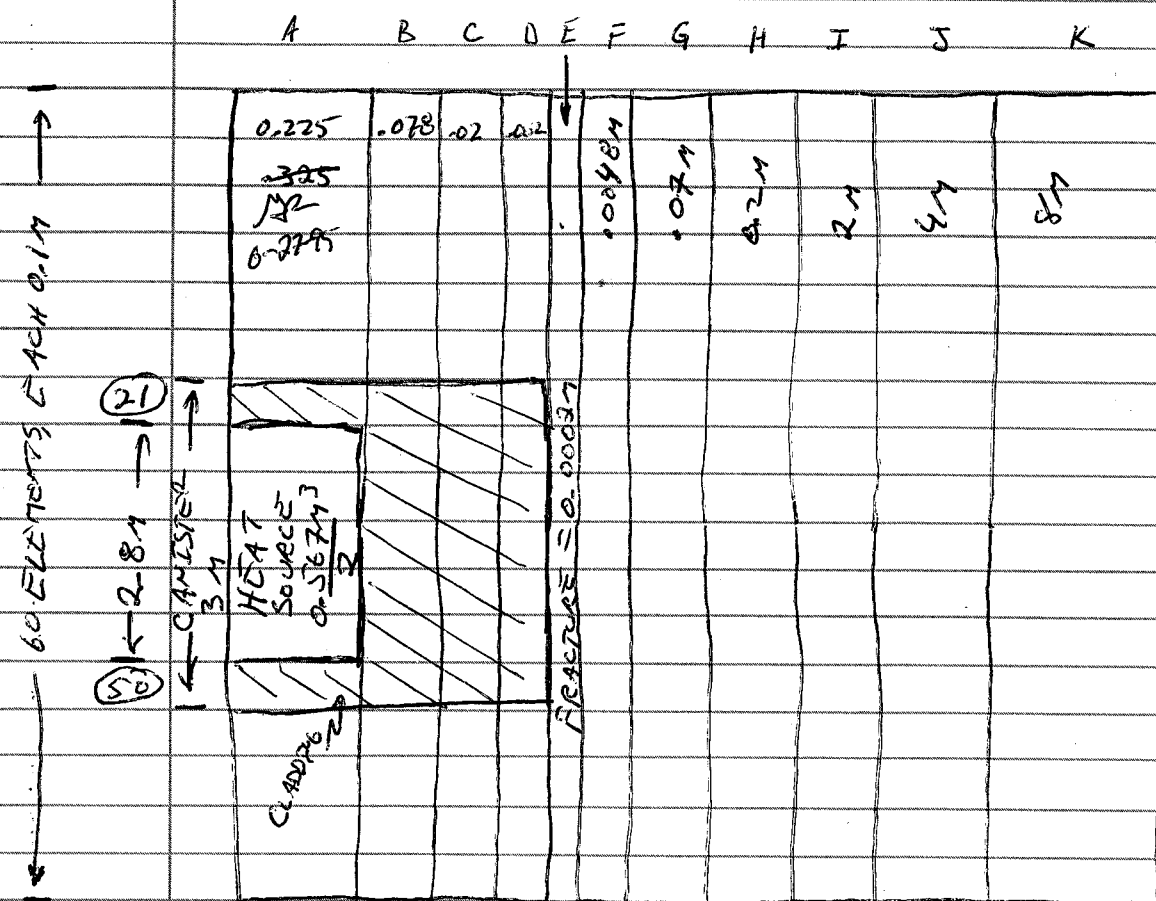 A B C D E F G H I J K
0.225 .078 .02 .002
.325
0.2795
.0048M .07M 0.2M 2M 4M 8M
60 ELEMENTS, EACH 0.1M
21
50
2.8M
CANISTER
3 M
HEAT
SOURCE
0.567M³
2
FRACTURE = 0.0002M
CLADDING